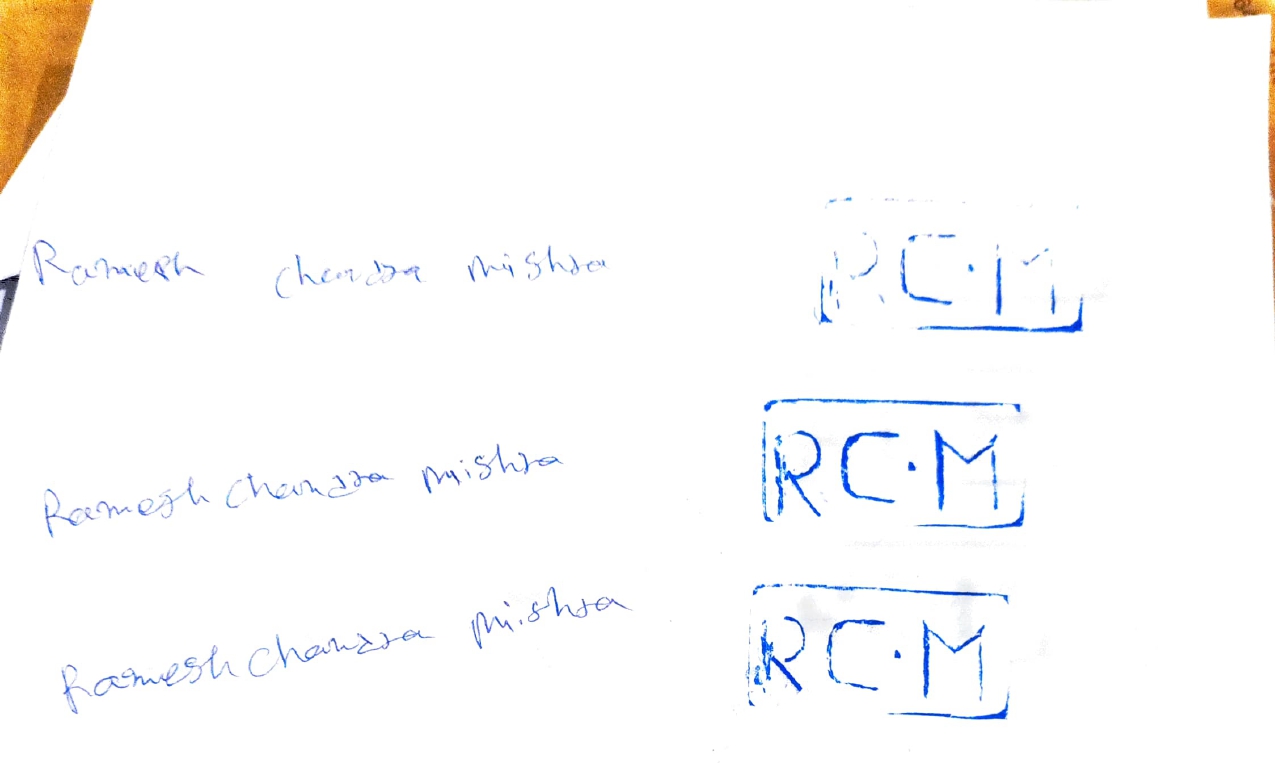 Ramesh Chandra Mishra RC.M
Ramesh Chandra Mishra RC.M
Ramesh Chandra Mishra RC.M